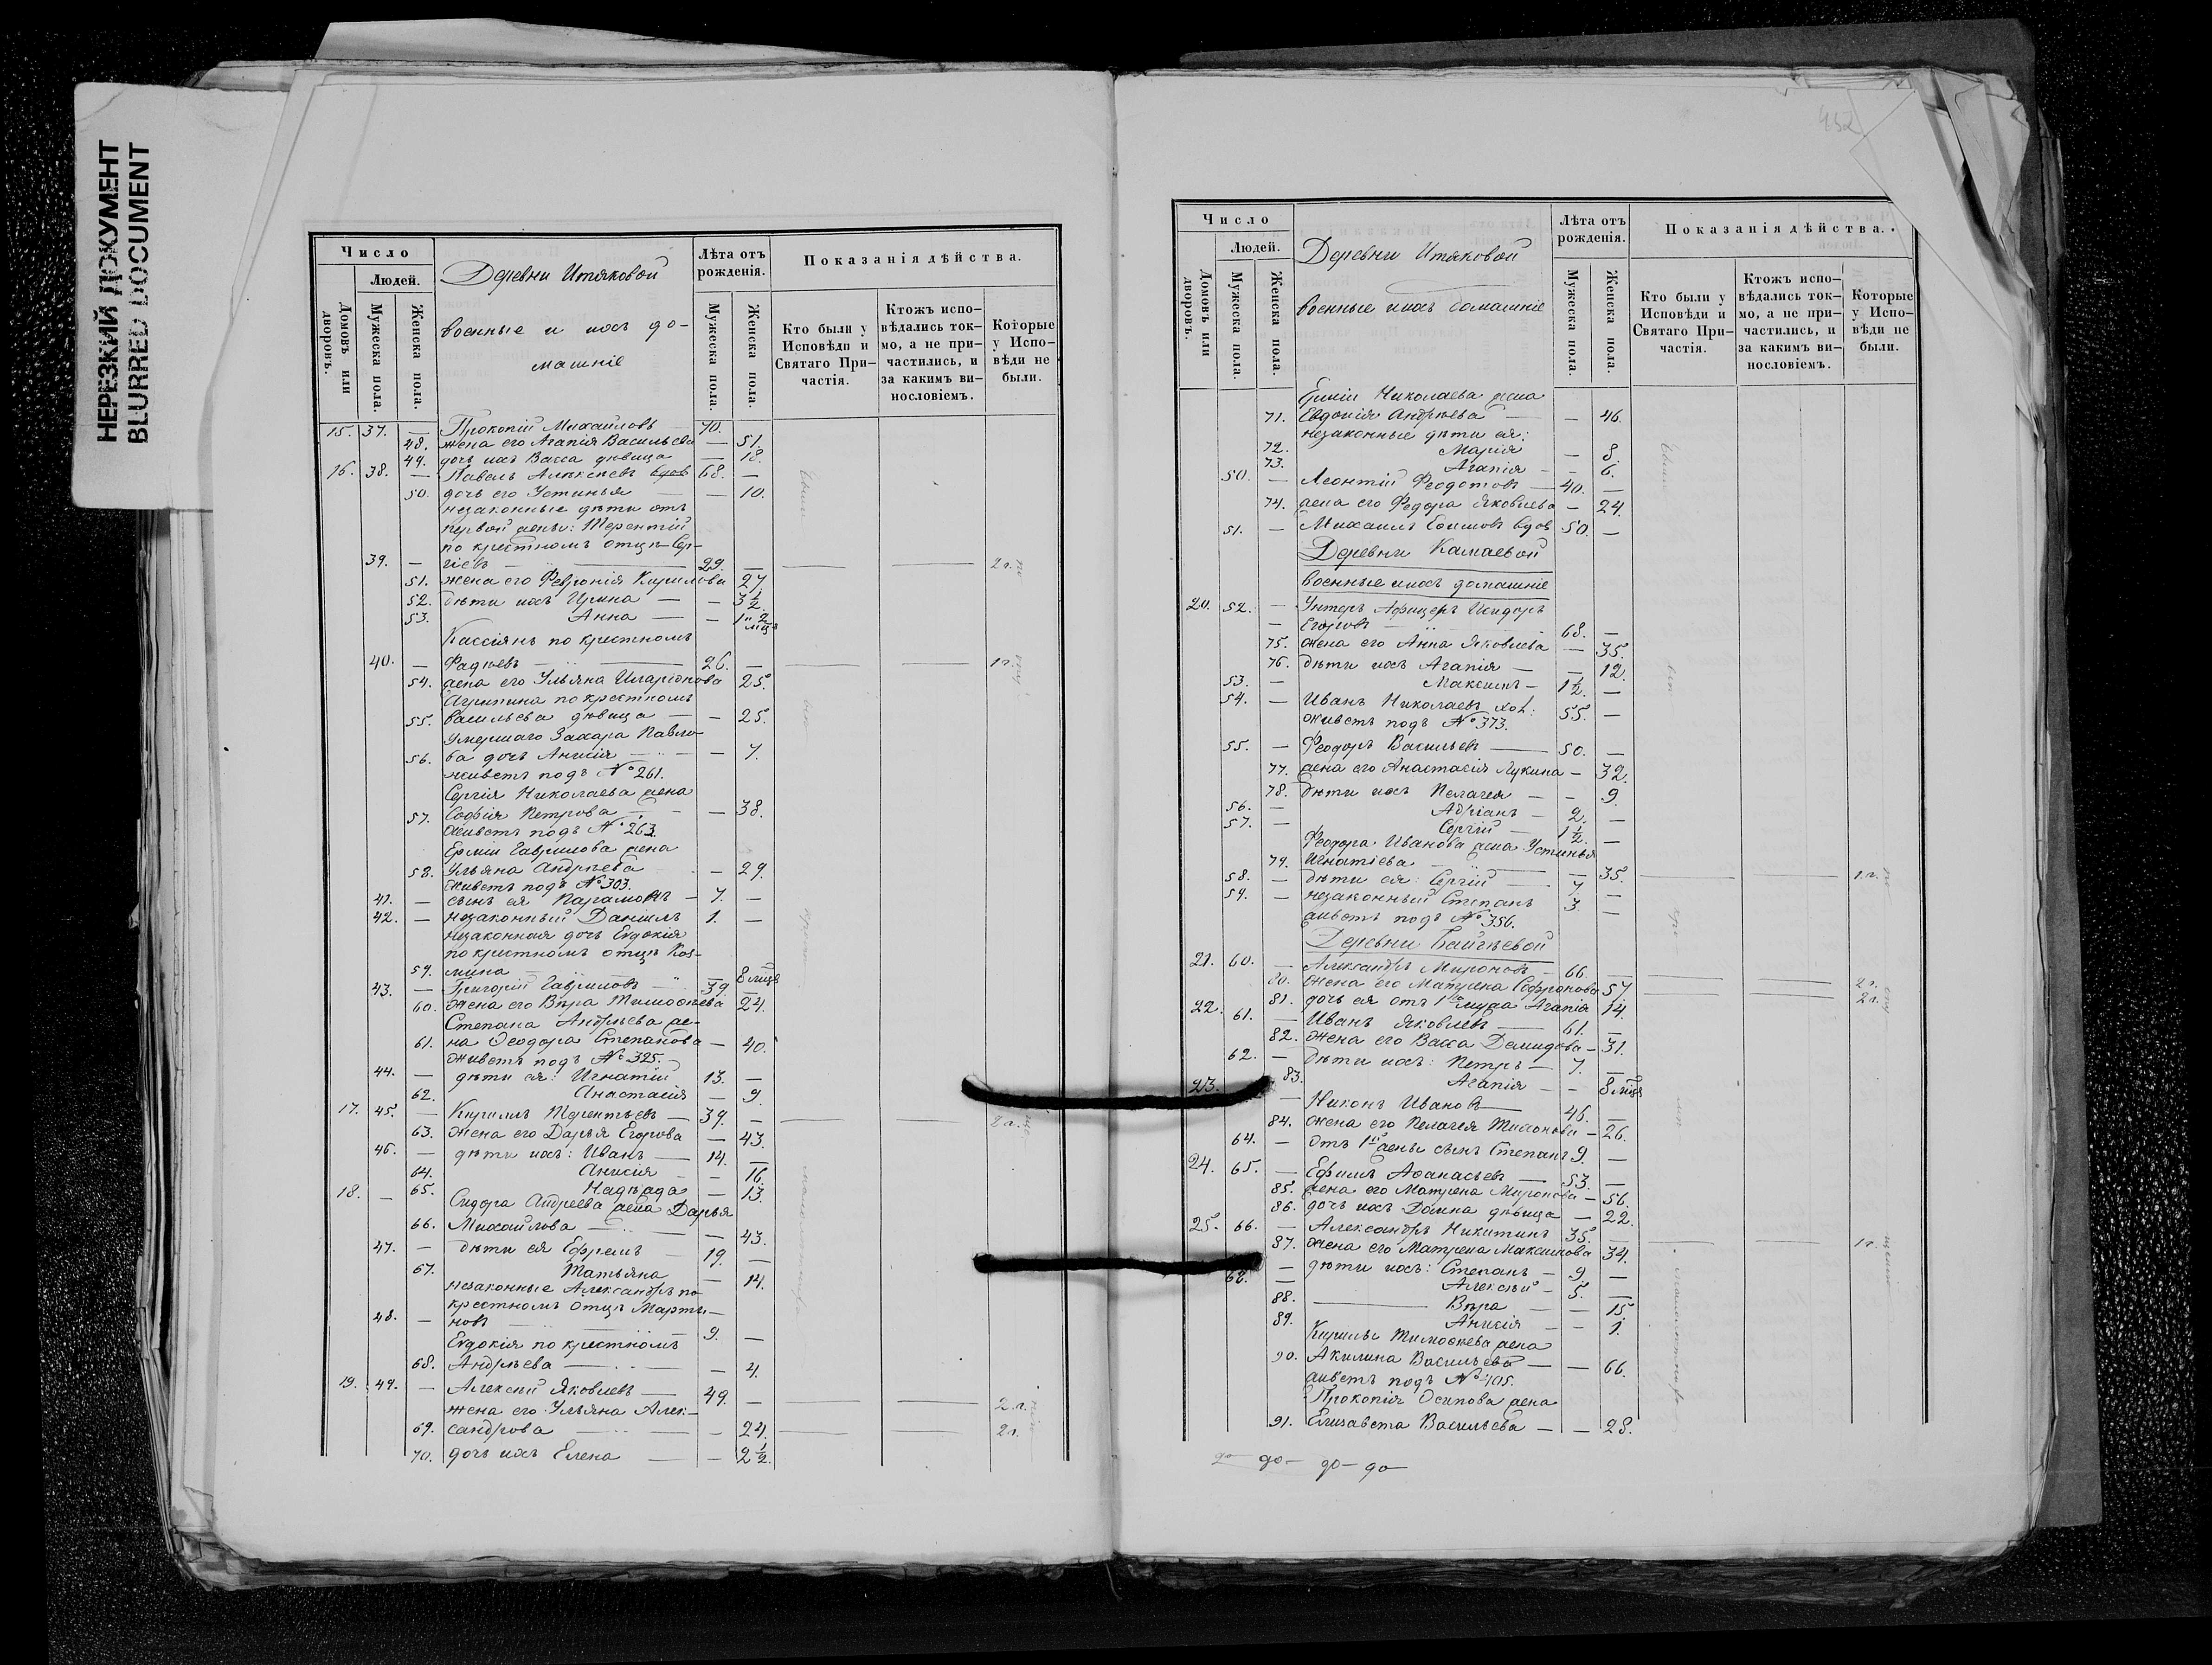 НЕРЕЗКИЙ ДОКУМЕНТ
BLURRED DOCUMENT
Число
Людей.
Домовъ или дворовъ.
Мужеска пола.
Женска пола.
Деревни Итяковой
военные и ихъ до-
машніе
Лѣта отъ рожденія.
Мужеска пола.
Женска пола.
Показанія дѣйства.
Кто были у Исповѣди и Святаго При- частія.
Ктожъ испо- вѣдались ток- мо, а не при- частились, и за какимъ ви- нословіемъ.
Которые у Испо- вѣди не были.
15. 37. — Прокопій Михайловъ 70.
48. жена его Агапія Васильева — 51.
49. дочь ихъ Васса дѣвица — 18.
16. 38. — Павелъ Алексѣевъ вдов 68. —
50. дочь его Устинья — 10.
незаконные дѣти отъ
первой жены: Терентій
по крестномъ отцѣ Сер-
39. — гіевъ 29. — 2 г.
51. жена его Февронія Кирилова 27
52. дѣти ихъ Ирина — — 3 1/2
53. Анна — — 1 2 мцъ
Кассіянъ по крестномъ
40. — Фадѣевъ 26. — 1 г.
54. жена его Ульяна Иларіонова 25.
Агрипина по крестномъ
55. Васильева дѣвица — — 25.
умершаго Захара Павло-
56. ва дочь Анисія — 7.
живетъ подъ № 261.
Сергія Николаева жена
57. Софія Петрова — — 38.
живетъ подъ № 263.
Ермія Гаврилова жена
58. Ульяна Андрѣева — 29.
живетъ подъ № 303.
41. — сынъ ея Парамонъ — 7. —
42. — незаконный Даніилъ 1. —
незаконная дочь Евдокія
по крестномъ отцѣ Коз-
59. мина — 8 мцъ
43. — Григорій Гавриловъ 39. —
60. жена его Вѣра Тимоѳеева 24.
Степана Андрѣева же-
61. на Ѳеодора Степанова — 40.
живетъ подъ № 325.
44. — дѣти ея: Игнатій 13. —
62. Анастасія — 9.
17. 45. — Кириллъ Терентьевъ — 39. — 2 г.
63. жена его Дарья Егорова — 43.
46. — дѣти ихъ: Иванъ — 14. —
64. Анисія — 16.
65. Надежда — 13.
18. — Сидора Андреева жена Дарья
66. Михайлова — 43.
47. — дѣти ея Ефремъ — 19. —
67. Татьяна — 14.
незаконные Александръ по
крестномъ отцѣ Марты-
48. — новъ 9. —
Евдокія по крестномъ
68. Андрѣева — 4.
19. 49. — Алексѣй Яковлевъ — 49. — 2 г.
жена его Ульяна Алек-
69. сандрова — 24. 2 г.
70. дочь ихъ Елена — — 2 1/2.
Число
Людей.
Домовъ или дворовъ.
Мужеска пола.
Женска пола.
Деревни Итяковой
военные и ихъ домашніе
Лѣта отъ рожденія.
Мужеска пола.
Женска пола.
Показанія дѣйства.
Кто были у Исповѣди и Святаго При- частія.
Ктожъ испо- вѣдались ток- мо, а не при- частились, и за какимъ ви- нословіемъ.
Которые у Испо- вѣди не были.
Николаева жена
71. Евдокія Андрѣева — — 46.
незаконные дѣти ея:
72. Марія — 8.
73. Агапія — — 6.
50. — Леонтій Ѳедотовъ — 40. —
74. жена его Ѳедора Яковлева — 24.
51. — Михаилъ вдов 50. —
Деревни Камаевой
военные и ихъ домашніе
20. 52. — Унтеръ Афицеръ Исидоръ
— Егоровъ 68. —
75. жена его Анна Яковлева — 35.
76. дѣти ихъ Агапія — — 12.
53. — Максимъ — 1 1/2. —
54. — Иванъ Николаевъ хол: 55. —
живетъ подъ № 373.
55. — Ѳеодоръ Васильевъ — 50. —
77. жена его Анастасія Лукина — 32.
78. дѣти ихъ Пелагея — — 9.
56. — Адріанъ — 2. —
57. — Сергій — 1 1/2. —
Ѳеодора Иванова жена Устинья
79. Игнатіева — 35. 1 г.
58. — дѣти ея: Сергій — 7. —
59. — незаконный Степанъ 3. —
живетъ подъ № 356.
Деревни
21. 60. — Александръ Мироновъ — 66. —
80. жена его Матрена Софронова 57. 2 г.
81. дочь ея отъ 1го мужа Агапія 14. 2 г.
22. 61. — Иванъ Яковлевъ — 61. —
82. жена его Васса Демидова — 31.
62. — дѣти ихъ: Петръ — 7. —
83. Агапія — — 8 мцъ
23. — Никонъ Ивановъ — 46. —
84. жена его Пелагея — 26.
64. — отъ 1й жены сынъ Степанъ 9. —
24. 65. — Ефимъ Аѳанасьевъ — 53. —
85. жена его Матрена Миронова — 56.
86. дочь ихъ Домна дѣвица — 22.
25. 66. — Александръ Никитинъ 35. — 1 г.
87. жена его Матрена Максимова 34.
— дѣти ихъ: Степанъ — 9. —
68. — Алексѣй — 5. —
88. Вѣра — — 15.
89. Анисія — — 1.
Кирилы Тимоѳеева жена
90. Акилина Васильева — — 66.
живетъ подъ № 405.
Прокопія Осипова жена
91. Елизавета Васильева — — 28.
до — до — до — до